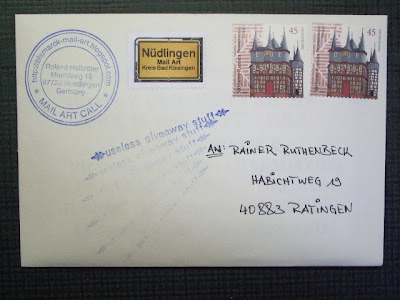 http://bismarck-mail-art.blogspot.com
Roland Halbritter
97720 Nuedlingen
Germany
MAIL ART CALL
Nüdlingen
Mail Art
Kreis Bad Kissingen
45
45
useless giveaway stuff
useless giveaway stuff
AN: RAINER RUTHENBECK
HABICHTWEG 19
40883 RATINGEN